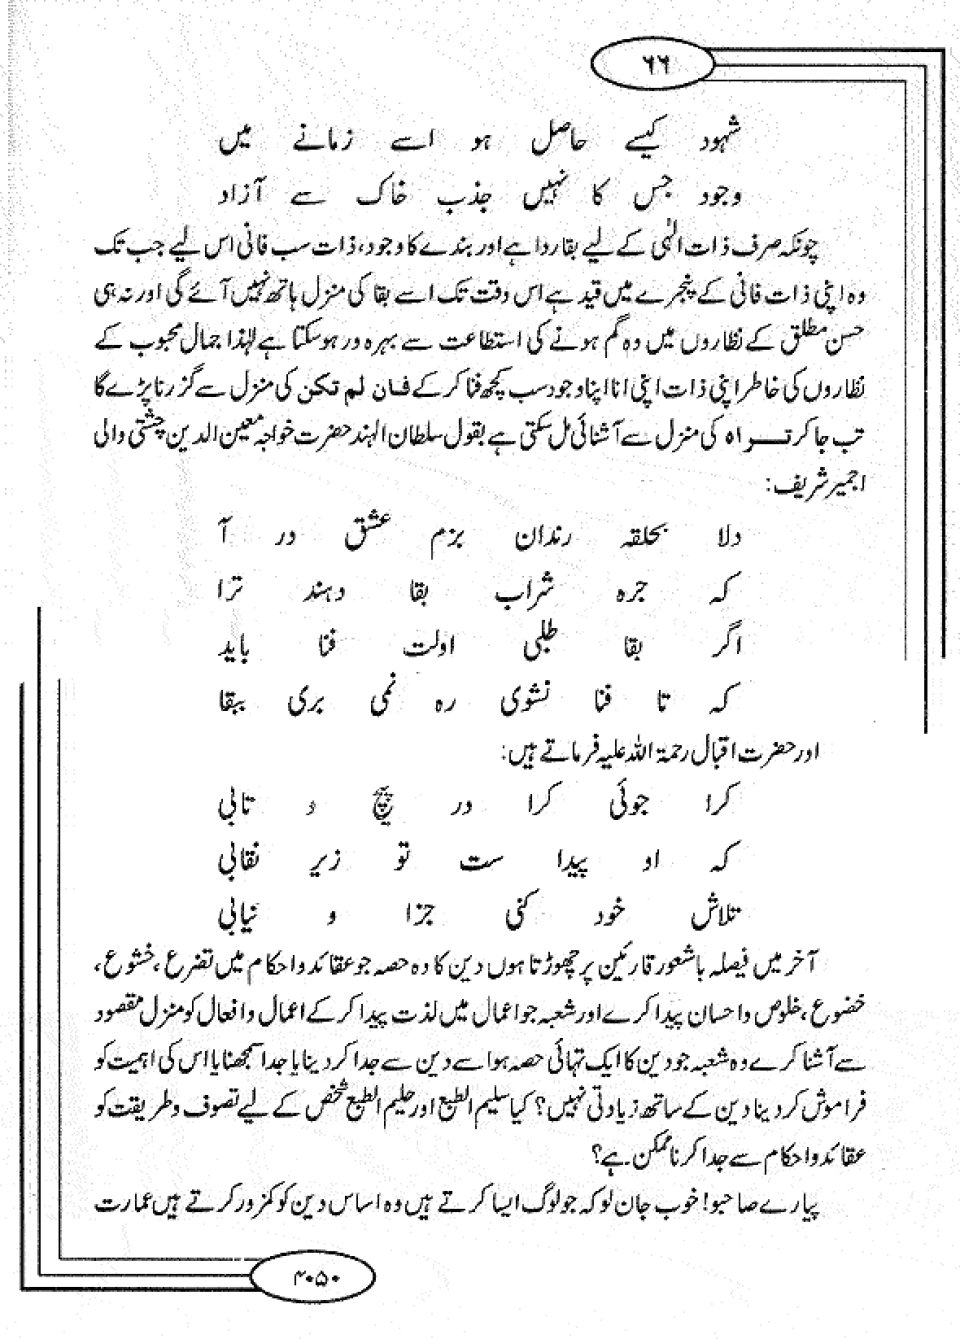 ۶۶
شہود کیسے حاصل ہو اسے زمانے میں
وجود جس کا نہیں جذب خاک سے آزاد
چونکہ صرف ذات الٰہی کے لیے بقا روا ہے اور بندے کا وجود، ذات سب فانی اس لیے جب تک
وہ اپنی ذات فانی کے پنجرے میں قید ہے اس وقت تک اسے بقا کی منزل ہاتھ نہیں آئے گی اور نہ ہی
حسن مطلق کے نظاروں میں وہ گم ہونے کی استطاعت سے بہرہ ور ہو سکتا ہے لہٰذا جمال محبوب کے
نظاروں کی خاطر اپنی ذات اپنی انا اپنا وجود سب کچھ فنا کر کے فان لم تکن کی منزل سے گزرنا پڑے گا
تب جا کر تراہ کی منزل سے آشنائی مل سکتی ہے بقول سلطان الہند حضرت خواجہ معین الدین چشتی والی
اجمیر شریف:
دلا بحلقہ رندان بزم عشق در آ
کہ جرہ شراب بقا دہند ترا
اگر بقا طلبی اولت فنا باید
کہ تا فنا نشوی رہ نمی بری ببقا
اور حضرت اقبال رحمۃ اللہ علیہ فرماتے ہیں:
کرا جوئی کرا در پیچ و تابی
کہ او پیدا ست تو زیر نقابی
تلاش خود کنی جزا و نیابی
آخر میں فیصلہ باشعور قارئین پر چھوڑتا ہوں دین کا وہ حصہ جو عقائد و احکام میں تضرع، خشوع،
خضوع، خلوص و احسان پیدا کرے اور شعبہ جو اعمال میں لذت پیدا کر کے اعمال و افعال کو منزل مقصود
سے آشنا کرے وہ شعبہ جو دین کا ایک تہائی حصہ ہو اسے دین سے جدا کر دینا یا جدا سمجھنا یا اس کی اہمیت کو
فراموش کر دینا دین کے ساتھ زیادتی نہیں؟ کیا سلیم الطبع اور حلیم الطبع شخص کے لیے تصوف و طریقت کو
عقائد و احکام سے جدا کرنا ممکن ہے؟
پیارے صاحبو! خوب جان لو کہ جو لوگ ایسا کرتے ہیں وہ اساس دین کو کمزور کرتے ہیں عمارت
۲۰۵۰